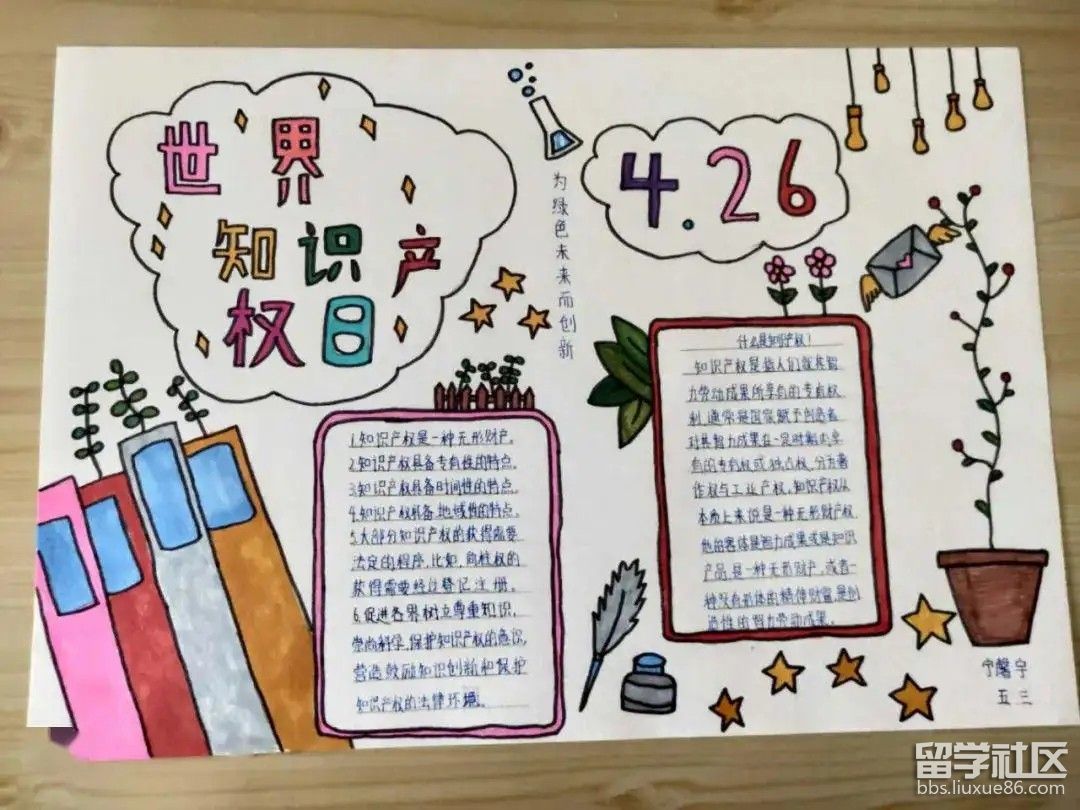 世界
知识产
权日
4.26
为绿色未来而创新
1.知识产权是一种无形财产。
2.知识产权具备专有性的特点。
3.知识产权具备时间性的特点。
4.知识产权具备地域性的特点。
5.大部分知识产权的获得需要
法定的程序,比如,商标权的
获得需要经过登记注册。
6.促进各界树立尊重知识,
崇尚科学,保护知识产权的意识,
营造鼓励知识创新和保护
知识产权的法律环境。
什么是知识产权?
知识产权是指人们就其智
力劳动成果所享有的专有权
利,通常是国家赋予创造者
对其智力成果在一定时期内享
有的专有权或独占权,分为著
作权与工业产权,知识产权从
本质上来说是一种无形财产权
他的客体是智力成果或是知识
产品,是一种无形财产,或者一
种没有形体的精神财富,是创
造性的智力劳动成果。
馨宇
五三
留学社区
bbs.liuxue86.com